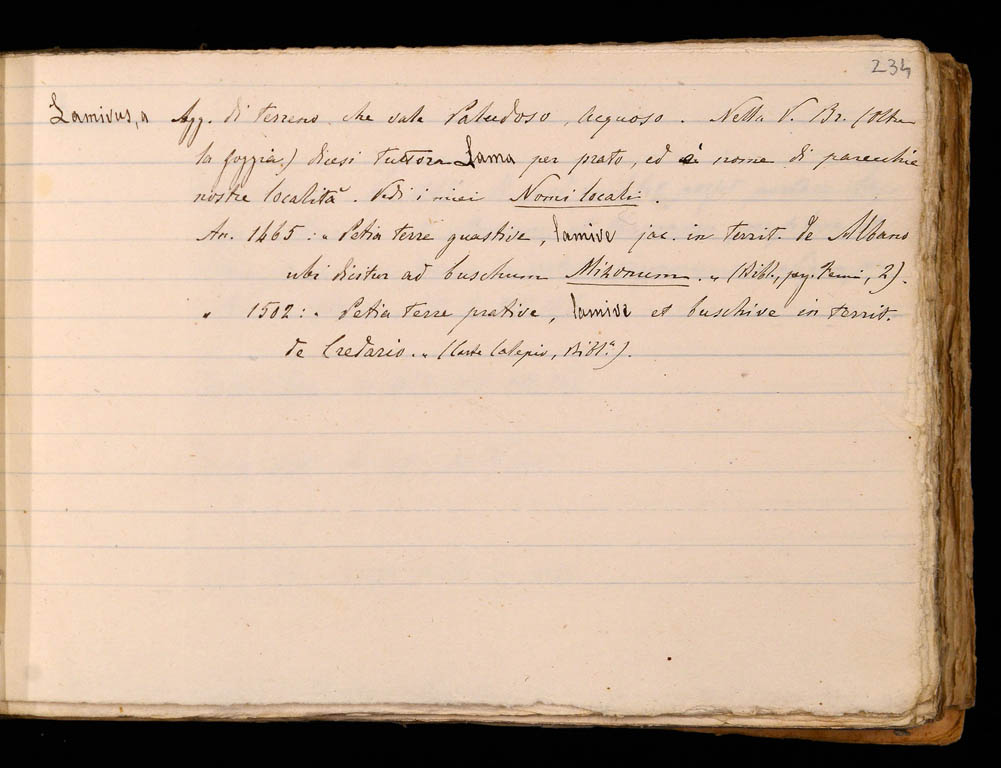 234
Lamivus, a Agg. di terreno che vale Paludoso, Acquoso. Nella V. Br. (Oltre
la Goggia) dicesi tuttora Lama per prato, ed è nome di parecchie
nostre località. Vedi i miei Nomi locali.
An. 1465: „ Petia terre guastive, lamive jac. in territ. de Albano
ubi dicitur ad buschum Mizonum. „ (Bibl., 2).
„ 1502: „ Petia terre prative, lamive et buschive in territ.
de Credario. „ (Carte Calepio, Bibl.ª).